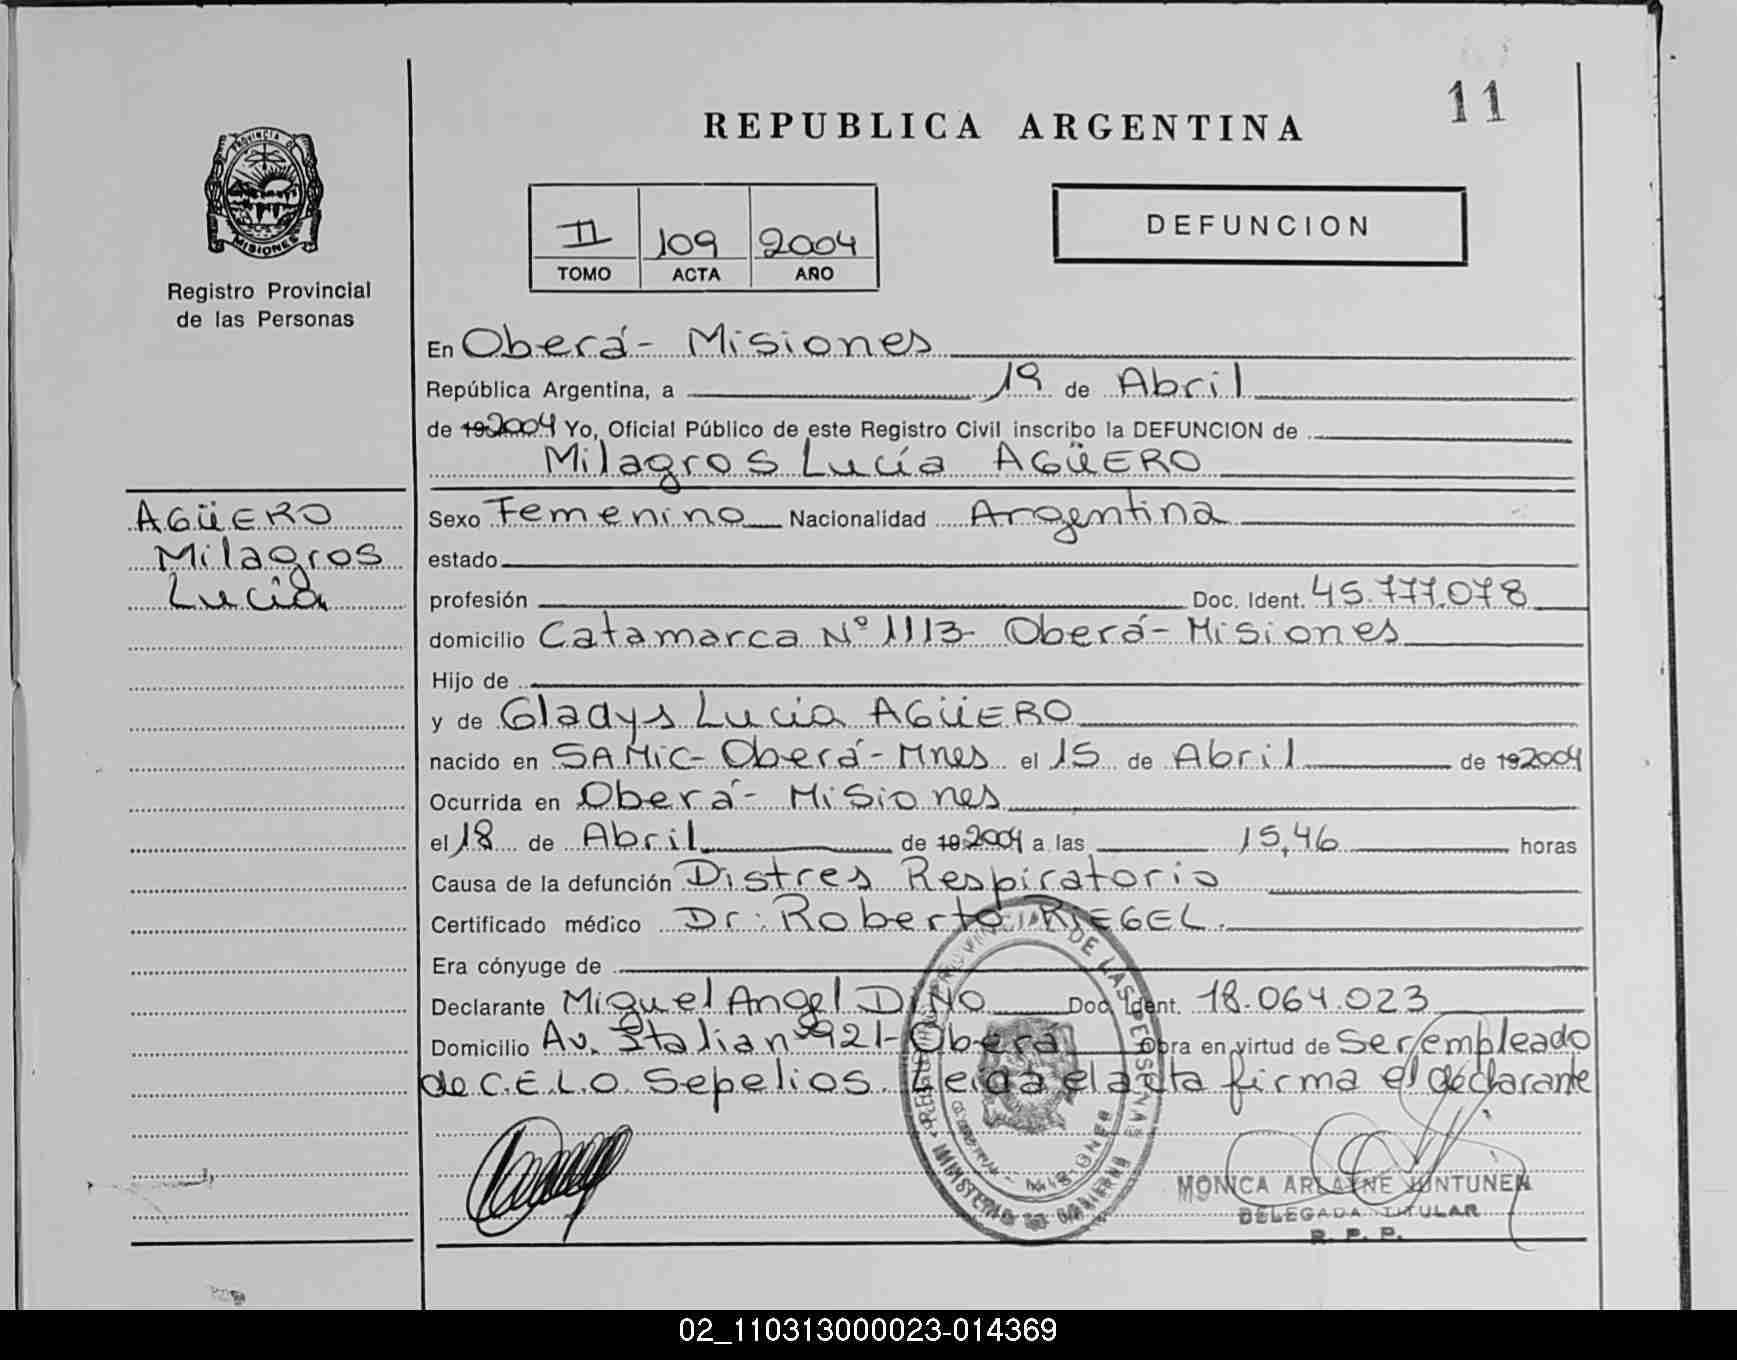 11
REPUBLICA ARGENTINA
PROVINCIA DE
MISIONES
Registro Provincial
de las Personas
II 109 2004
TOMO ACTA AÑO
DEFUNCION
En Oberá - Misiones
República Argentina, a 19 de Abril
de 19 2004 Yo, Oficial Público de este Registro Civil inscribo la DEFUNCION de
Milagros Lucía AGÜERO
AGÜERO
Milagros
Lucía
Sexo Femenino Nacionalidad Argentina
estado
profesión Doc. Ident. 45.777.078
domicilio Catamarca Nº 1113- Oberá - Misiones
Hijo de
y de Gladys Lucia AGÜERO
nacido en SAMIC- Oberá - Mnes el 15 de Abril de 19 2004
Ocurrida en Oberá - Misiones
el 18 de Abril de 19 2004 a las 15,46 horas
Causa de la defunción Distres Respiratorio
Certificado médico Dr: Roberto RIEGEL.
Era cónyuge de
Declarante Miguel Angel DINO Doc. Ident. 18.064.023
Domicilio Av. Italia nº 921- Oberá Obra en virtud de Ser empleado
de C.E.L.O. Sepelios. Leida el acta firma el declarante
MONICA ARLAYNE JUNTUNEN
DELEGADA TITULAR
R. P. P.
02_110313000023-014369